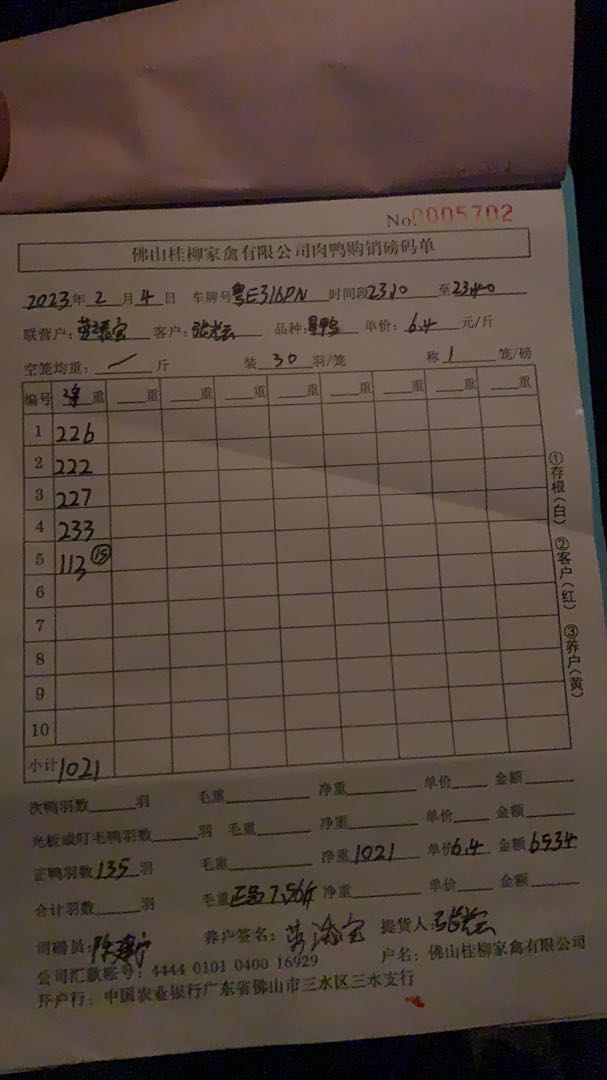 No.0005702
佛山桂柳家禽有限公司肉鸭购销磅码单
2023年 2 月 4 日 车牌号粤E316PN 时间段2310 至2340
联营户: 客户: 品种: 单价: 6.4 元/斤
空笼均重: 斤 装 30 羽/笼 称 1 笼/磅
编号 净重 重 重 重 重 重 重 重
1 226
2 222
3 227
4 233
5 113 ⑮
6
7
8
9
10
小计 1021
①存根(白) ②客户(红) ③养户(黄)
次鸭羽数 羽 毛重 净重 单价 金额
光板或叮毛鸭羽数 羽 毛重 净重 单价 金额
正鸭羽数135羽 毛重 净重1021 单价6.4 金额6534
合计羽数 羽 毛重正品7.56斤 净重 单价 金额
司磅员: 养户签名: 提货人:
公司汇款账号: 4444 0101 0400 16929 户名: 佛山桂柳家禽有限公司
开户行: 中国农业银行广东省佛山市三水区三水支行